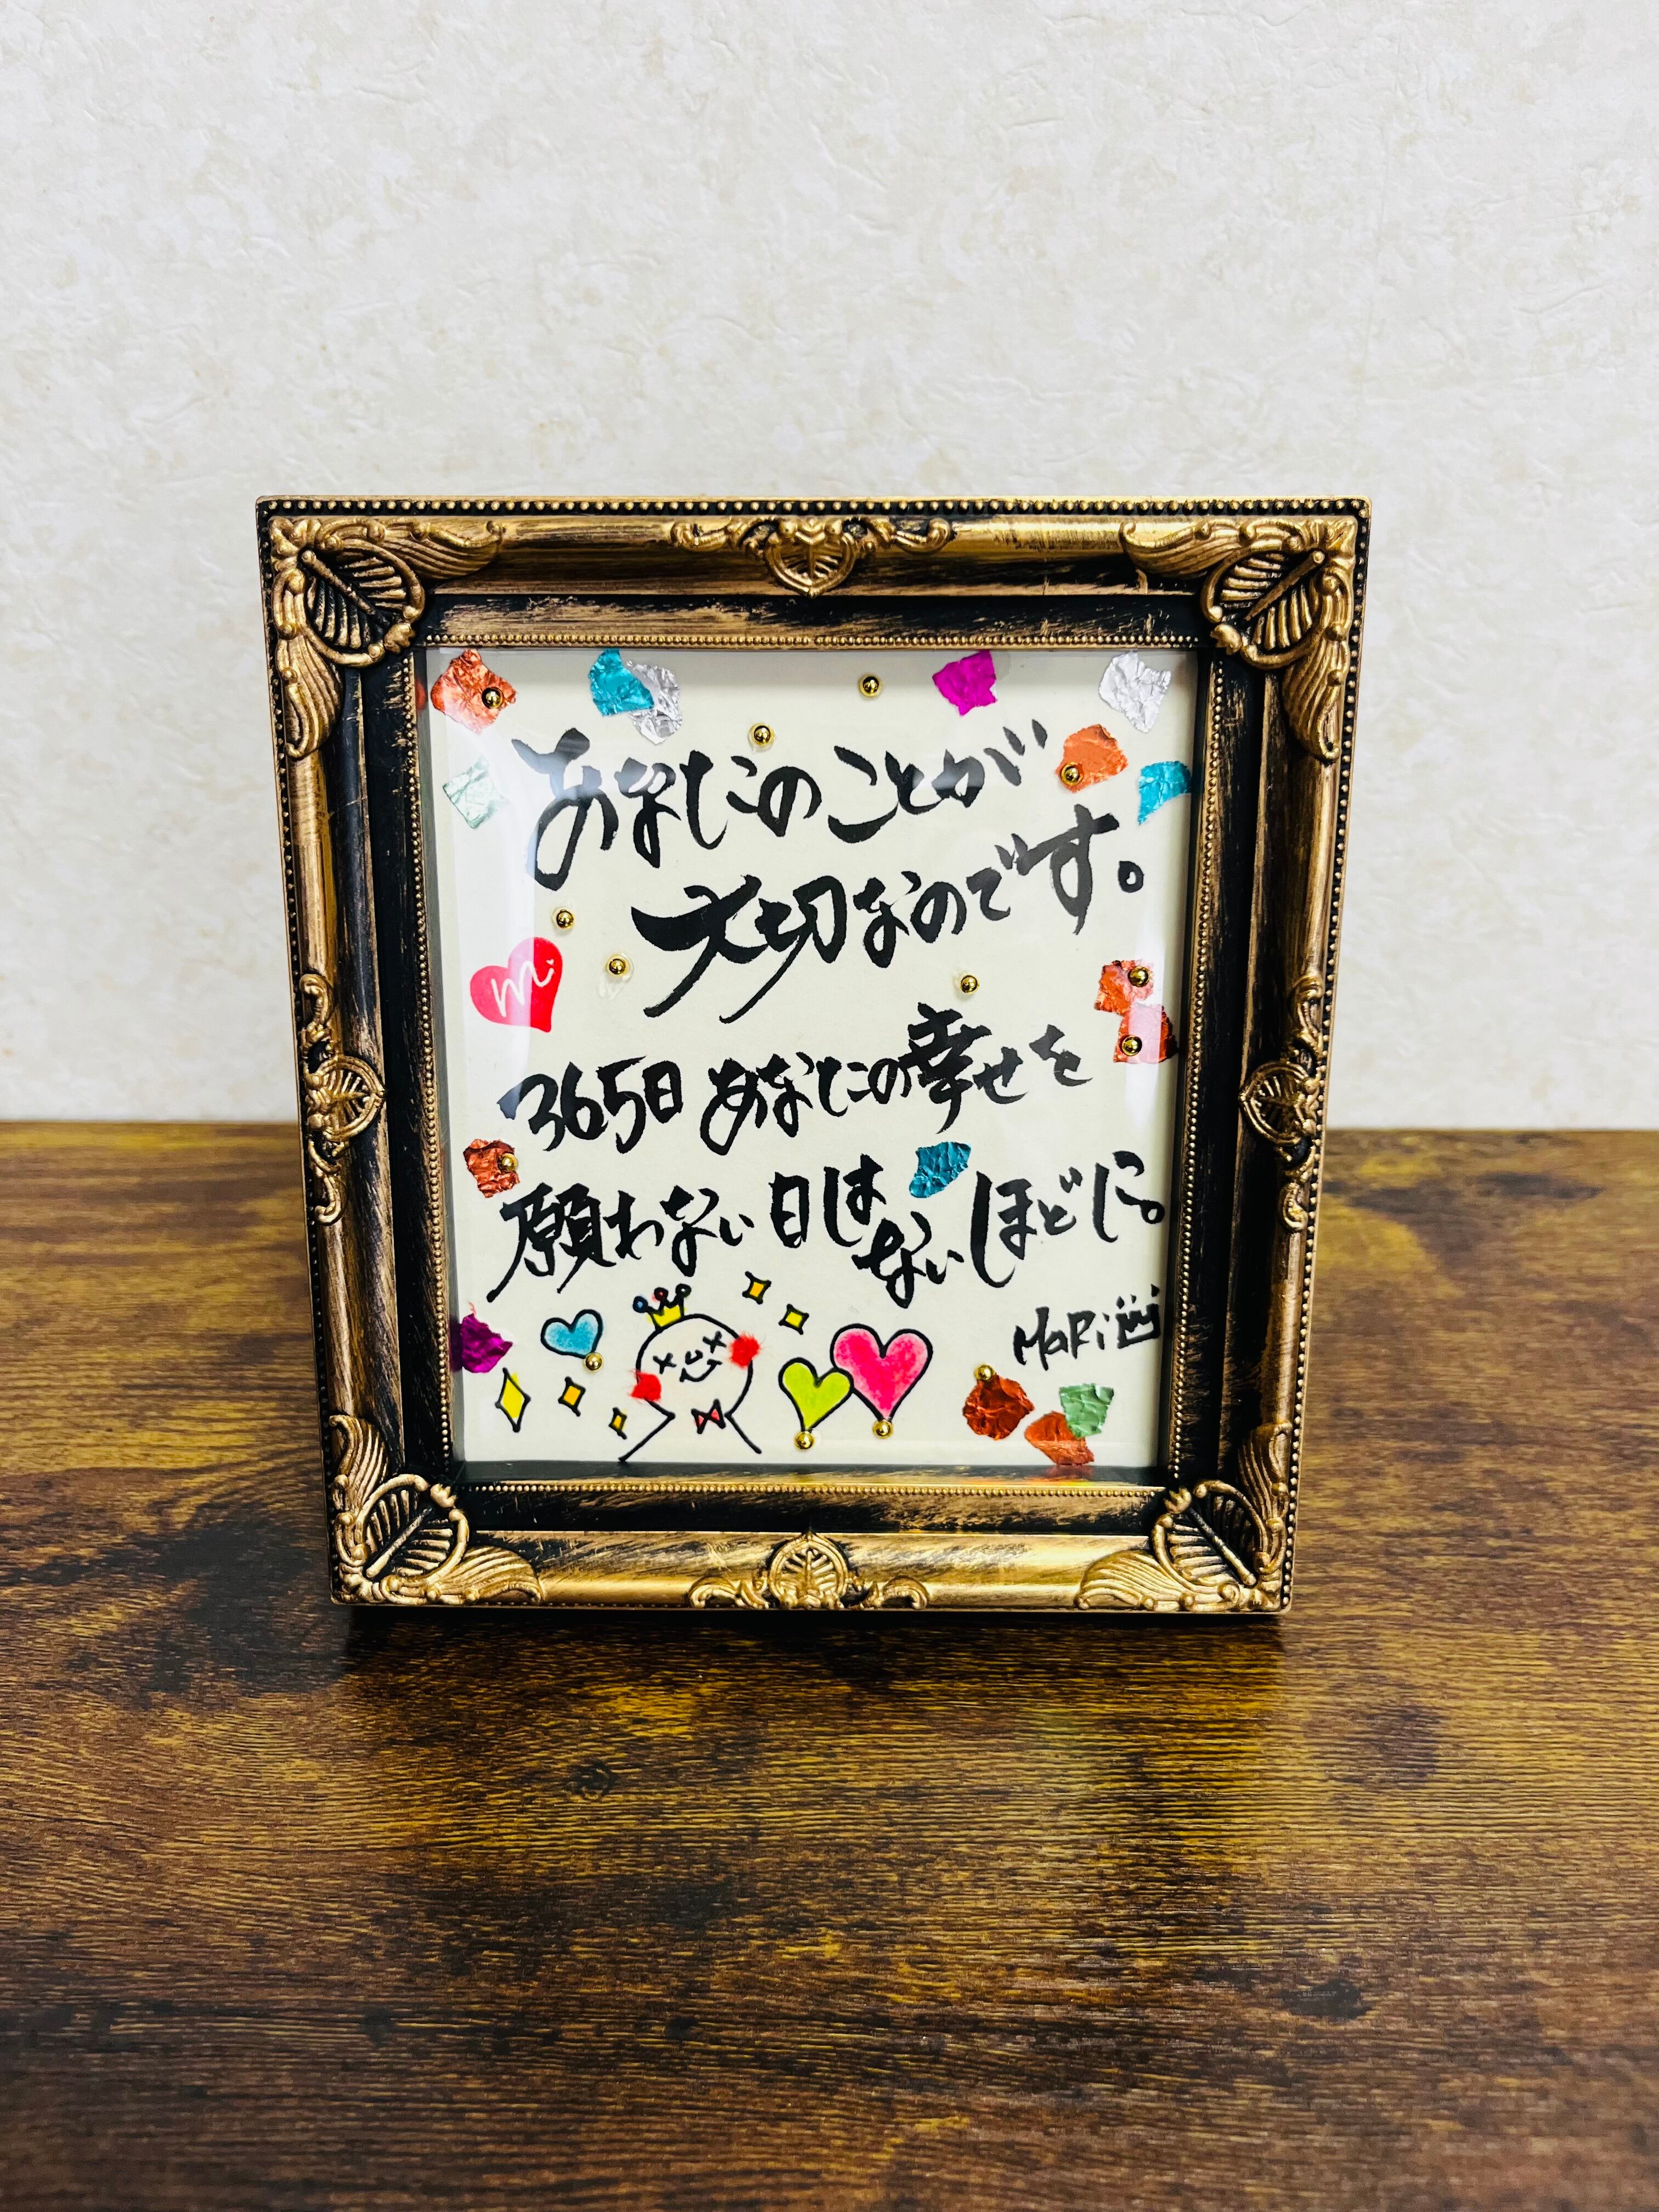 あなたのことが
大切なのです。
m.
365日あなたの幸せを
願わない日はないほどに。
MaRi